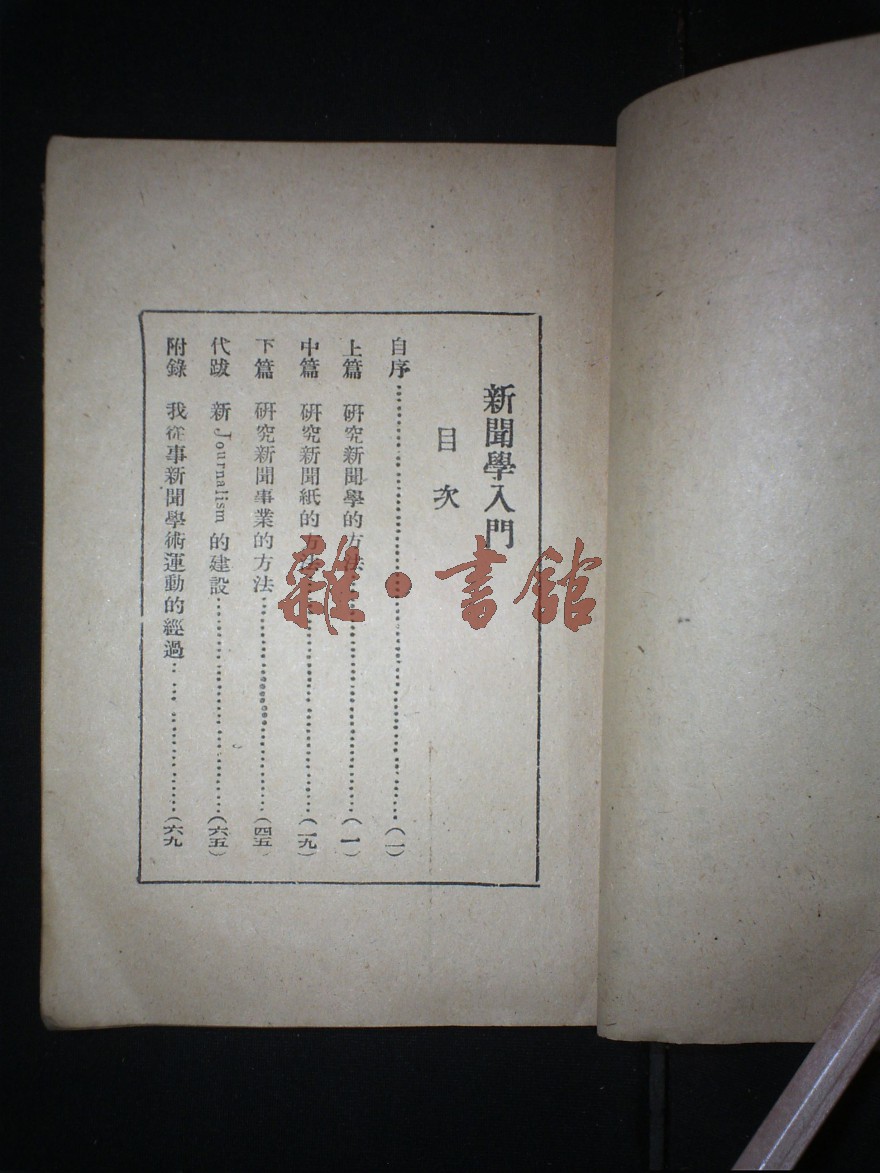 新聞學入門
目次
自序……………………(一)
上篇 研究新聞學的方法……………………(一)
中篇 研究新聞紙的方法……………………(一九)
下篇 研究新聞事業的方法……………………(四五)
代跋 新Journalism的建設……………………(六五)
附錄 我從事新聞學術運動的經過……………………(六九
雜·書館